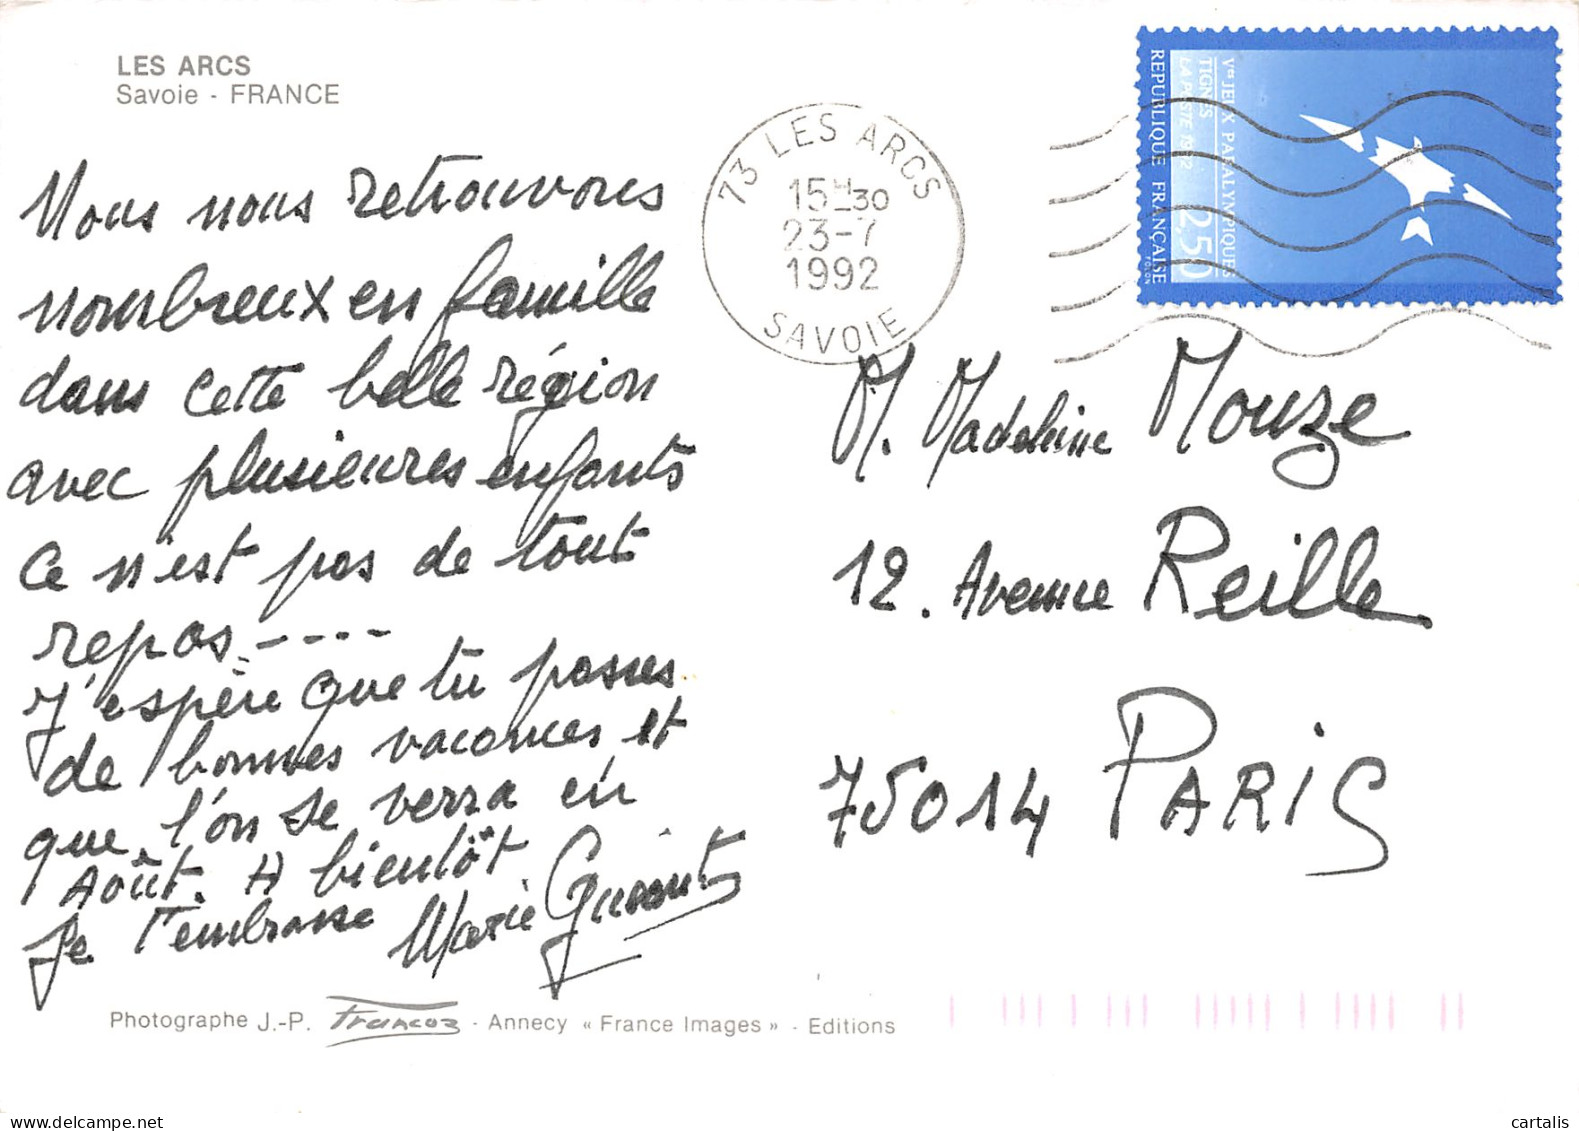 LES ARCS
Savoie - FRANCE
Nous nous retrouvons
nombreux en famille
dans cette belle région
avec plusieures enfants
Ce n'est pas de tout
repos. ----
J'espère que tu passes
de bonnes vacances et
que l'on se verra en
Août. A bientôt
Je t'embrasse Marie
73 LES ARCS
15H30
23-7
1992
SAVOIE
Ves JEUX PARALYMPIQUES
TIGNES
LA POSTE 1992
2,50
REPUBLIQUE FRANÇAISE
FOLON
M. Madeleine Mouze
12. Avenue Reille
75014 PARIS
Photographe J.-P. Francoz - Annecy « France Images » - Editions
cartalis